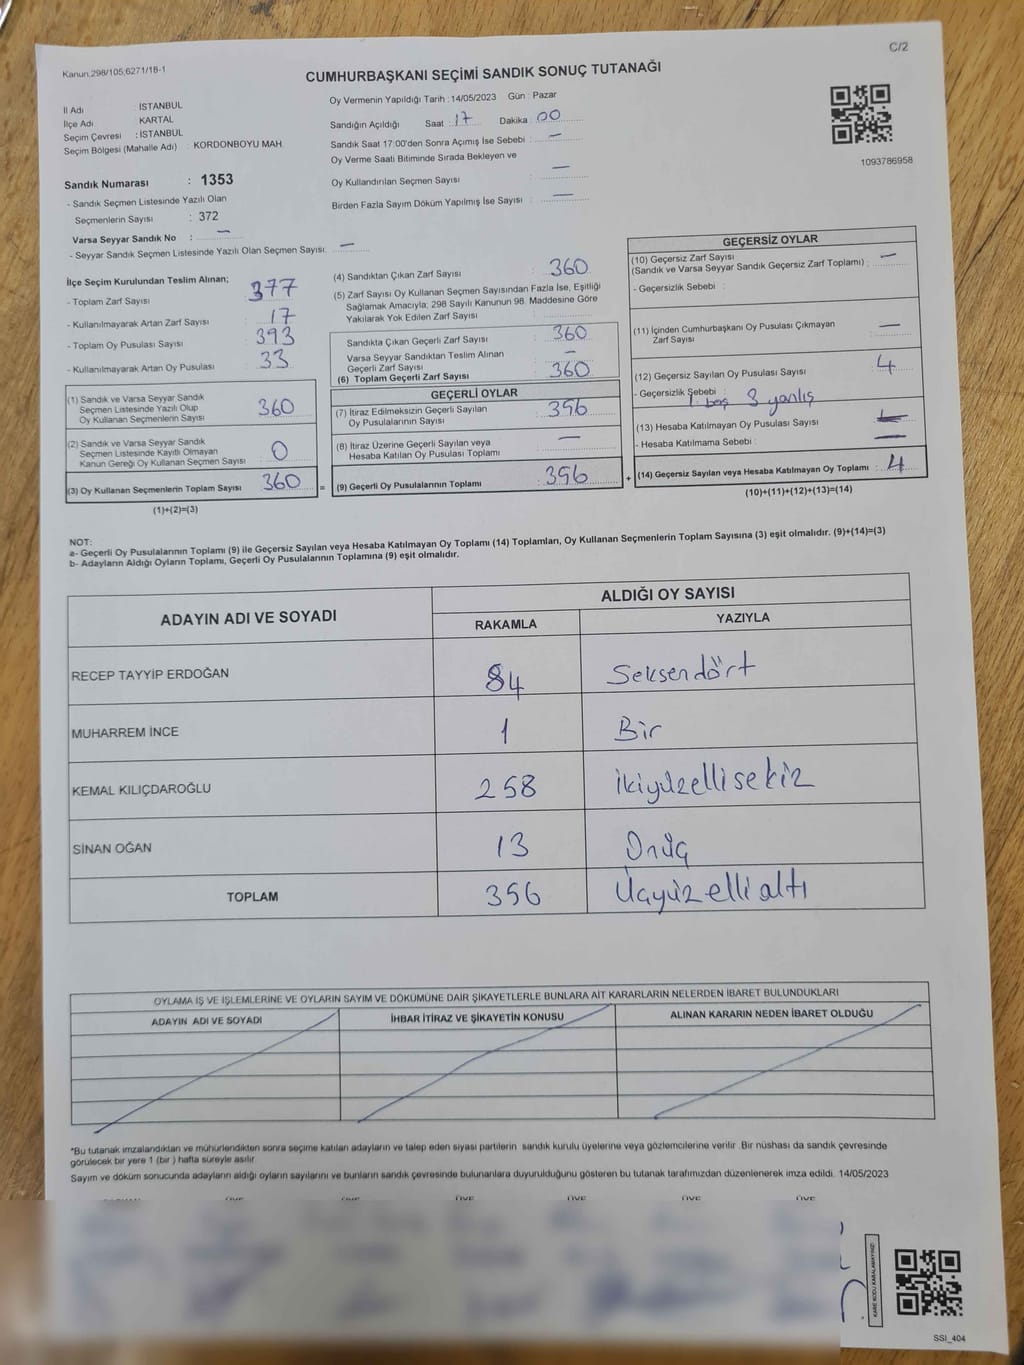 C/2
Kanun.298/105,6271/18-1
CUMHURBAŞKANI SEÇİMİ SANDIK SONUÇ TUTANAĞI
İl Adı : İSTANBUL
İlçe Adı KARTAL
Seçim Çevresi : İSTANBUL
Seçim Bölgesi (Mahalle Adı) : KORDONBOYU MAH.
Sandık Numarası : 1353
- Sandık Seçmen Listesinde Yazılı Olan
Seçmenlerin Sayısı : 372
Varsa Seyyar Sandık No : —
- Seyyar Sandık Seçmen Listesinde Yazılı Olan Seçmen Sayısı: —
Oy Vermenin Yapıldığı Tarih : 14/05/2023 Gün : Pazar
Sandığın Açıldığı Saat : 17 Dakika : 00
Sandık Saat 17:00'den Sonra Açımış İse Sebebi : —
Oy Verme Saati Bitiminde Sırada Bekleyen ve
Oy Kullandırılan Seçmen Sayısı : —
Birden Fazla Sayım Döküm Yapılmış İse Sayısı : —
1093786958
İlçe Seçim Kurulundan Teslim Alınan;
- Toplam Zarf Sayısı : 377
- Kullanılmayarak Artan Zarf Sayısı : 17
- Toplam Oy Pusulası Sayısı : 393
- Kullanılmayarak Artan Oy Pusulası : 33
(1) Sandık ve Varsa Seyyar Sandık
Seçmen Listesinde Yazılı Olup
Oy Kullanan Seçmenlerin Sayısı : 360
(2) Sandık ve Varsa Seyyar Sandık
Seçmen Listesinde Kayıtlı Olmayan
Kanun Gereği Oy Kullanan Seçmen Sayısı : 0
(3) Oy Kullanan Seçmenlerin Toplam Sayısı : 360 =
(1)+(2)=(3)
(4) Sandıktan Çıkan Zarf Sayısı : 360
(5) Zarf Sayısı Oy Kullanan Seçmen Sayısından Fazla İse, Eşitliği
Sağlamak Amacıyla; 298 Sayılı Kanunun 98. Maddesine Göre
Yakılarak Yok Edilen Zarf Sayısı :
Sandıkta Çıkan Geçerli Zarf Sayısı : 360
Varsa Seyyar Sandıktan Teslim Alınan
Geçerli Zarf Sayısı : —
(6) Toplam Geçerli Zarf Sayısı : 360
GEÇERLİ OYLAR
(7) İtiraz Edilmeksizin Geçerli Sayılan
Oy Pusulalarının Sayısı : 356
(8) İtiraz Üzerine Geçerli Sayılan veya
Hesaba Katılan Oy Pusulası Toplamı : —
(9) Geçerli Oy Pusulalarının Toplamı : 356 +
GEÇERSİZ OYLAR
(10) Geçersiz Zarf Sayısı
(Sandık ve Varsa Seyyar Sandık Geçersiz Zarf Toplamı) : —
- Geçersizlik Sebebi :
(11) İçinden Cumhurbaşkanı Oy Pusulası Çıkmayan
Zarf Sayısı : —
(12) Geçersiz Sayılan Oy Pusulası Sayısı : 4
- Geçersizlik Sebebi : 1 boş 3 yanlış
(13) Hesaba Katılmayan Oy Pusulası Sayısı :
- Hesaba Katılmama Sebebi : —
(14) Geçersiz Sayılan veya Hesaba Katılmayan Oy Toplamı : 4
(10)+(11)+(12)+(13)=(14)
NOT:
a- Geçerli Oy Pusulalarının Toplamı (9) ile Geçersiz Sayılan veya Hesaba Katılmayan Oy Toplamı (14) Toplamları, Oy Kullanan Seçmenlerin Toplam Sayısına (3) eşit olmalıdır. (9)+(14)=(3)
b- Adayların Aldığı Oyların Toplamı, Geçerli Oy Pusulalarının Toplamına (9) eşit olmalıdır.
ADAYIN ADI VE SOYADI ALDIĞI OY SAYISI
RAKAMLA YAZIYLA
RECEP TAYYİP ERDOĞAN 84 Seksendört
MUHARREM İNCE 1 Bir
KEMAL KILIÇDAROĞLU 258 ikiyüzellisekiz
SİNAN OĞAN 13 Onüç
TOPLAM 356 Üçyüz elli altı
OYLAMA İŞ VE İŞLEMLERİNE VE OYLARIN SAYIM VE DÖKÜMÜNE DAİR ŞİKAYETLERLE BUNLARA AİT KARARLARIN NELERDEN İBARET BULUNDUKLARI
ADAYIN ADI VE SOYADI İHBAR İTİRAZ VE ŞİKAYETİN KONUSU ALINAN KARARIN NEDEN İBARET OLDUĞU
*Bu tutanak imzalandıktan ve mühürlendikten sonra seçime katılan adayların ve talep eden siyasi partilerin sandık kurulu üyelerine veya gözlemcilerine verilir .Bir nüshası da sandık çevresinde
görülecek bir yere 1 (bir) hafta süreyle asılır.
Sayım ve döküm sonucunda adayların aldığı oyların sayılarını ve bunların sandık çevresinde bulunanlara duyurulduğunu gösteren bu tutanak tarafımızdan düzenlenerek imza edildi. 14/05/2023
ÜYE ÜYE ÜYE ÜYE ÜYE
KARE KODU KARALAMAYINIZ!
SSI_404